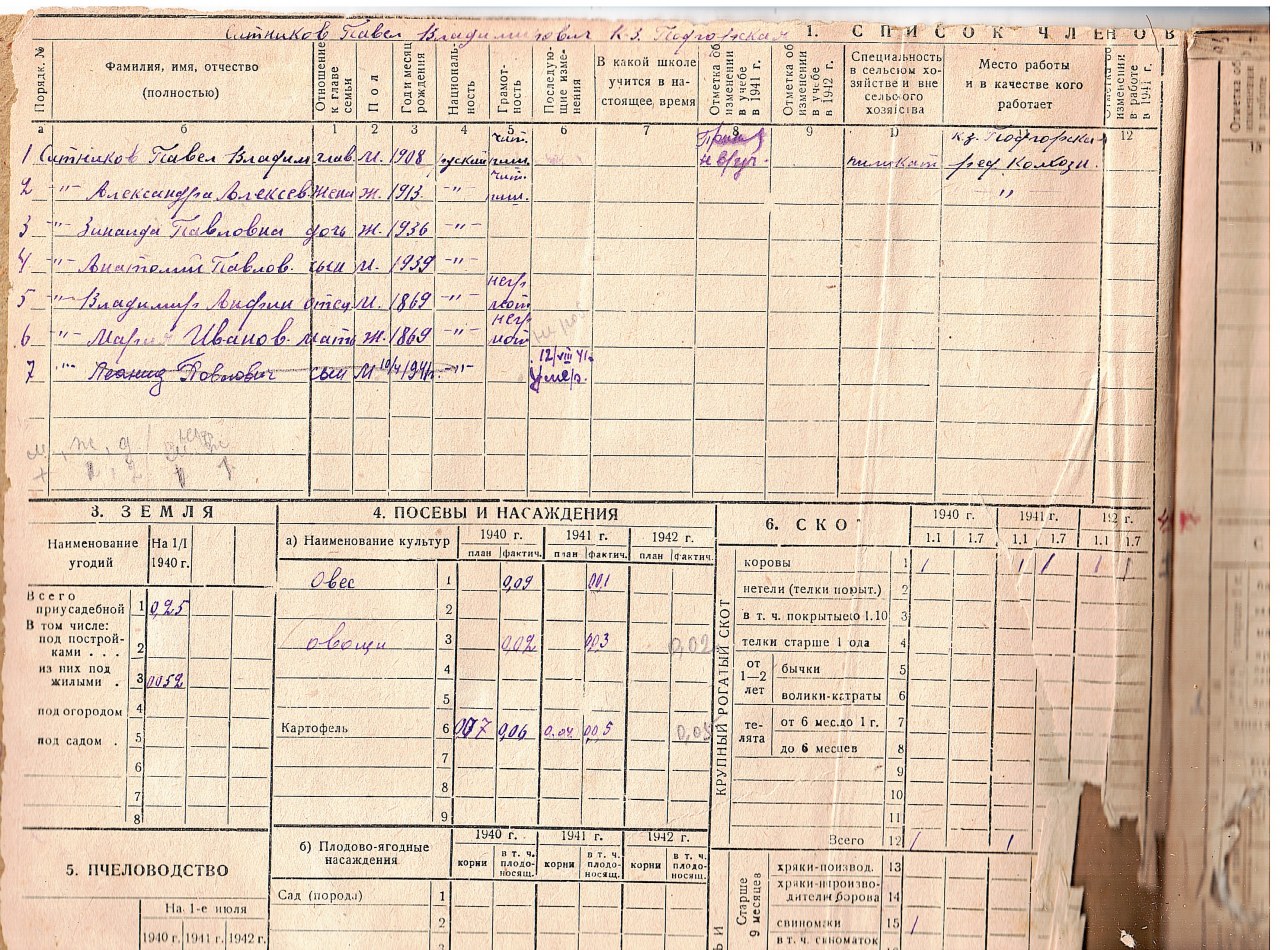 Ситников Павел Владимирович К-з. Подгорская 1. СПИСОК ЧЛЕНОВ
Порядк. № Фамилия, имя, отчество (полностью) Отношение к главе семьи Пол Год и месяц рождения Националь-ность Грамот-ность Последую-щие изме-нения В какой школе учится в на-стоящее время Отметка об изменении в учебе в 1941 г. Отметка об изменении в учебе в 1942 г. Специальность в сельском хо-зяйстве и вне сельского хозяйства Место работы и в качестве кого работает Отметка об изменении в работе в 1941 г.
а б 1 2 3 4 5 6 7 8 9 12 13
1 Ситников Павел Владим глав. М. 1908 русский чит. пиш. к-з. Подгорская
2 -"- Александра Алексеев. жена Ж. 1913. -"- чит. пиш. "
3 -"- Зинаида Павловна дочь Ж. 1936 -"-
4 -"- Анатолий Павлов. сын М. 1939 -"-
5 -"- Владимир отец М. 1869 -"- негр мот
6 -"- Мария Иванов. мать Ж. 1869 -"- негр мот
7 -"- Леонид Павлович сын М 1941г. -"- 12/VIII 41г. Умер.
3. ЗЕМЛЯ
Наименование угодий На 1/I 1940 г.
Всего приусадебной 1 0,25
В том числе:
под построй-ками . . . 2
из них под жилыми . 3 0052
под огородом 4
под садом . 5
6
7
8
5. ПЧЕЛОВОДСТВО
На 1-е июля
1940 г. 1941 г. 1942 г.
4. ПОСЕВЫ И НАСАЖДЕНИЯ
а) Наименование культур 1940 г. 1941 г. 1942 г.
план фактич. план фактич. план фактич.
Овес 1 0,09 001
2
Овощи 3 0,02 003 0,02
4
5
Картофель 6 007 0,06 0.04 005 0,05
7
8
9
б) Плодово-ягодные насаждения 1940 г. 1941 г. 1942 г.
корни в т. ч. плодо-носящ. корни в т. ч. плодо-носящ. корни в т. ч. плодо-носящ.
Сад (породы) 1
2
3
6. СКОТ
1940 г. 1941 г. г.
1.1 1.7 1.1 1.7 1.1 1.7
КРУПНЫЙ РОГАТЫЙ СКОТ
коровы 1 1 1 1 1 1
нетели (телки покрыт.) 2
в т. ч. покрытые до 1.10 3
телки старше 1 года 4
от 1—2 лет бычки 5
волики-кастраты 6
те-лята от 6 мес. до 1 г. 7
до 6 месяцев 8
9
10
11
Всего 12 1 1
Старше 9 месяцев
хряки-производ. 13
хряки-непроизво-дители борова 14
свиноматки 15 1
в т. ч. свиноматок